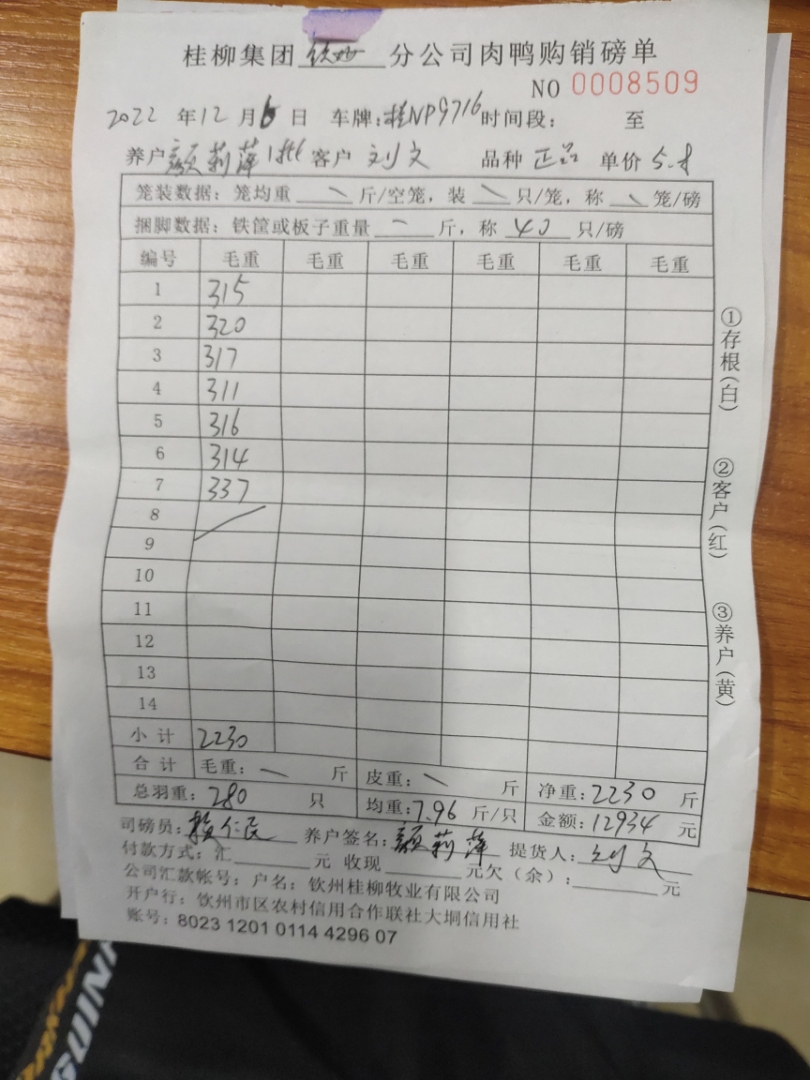 桂柳集团钦州分公司肉鸭购销磅单
NO 0008509
2022 年 12 月 6 日 车牌:桂NP9716 时间段: 至
养户 颜莉萍 客户 刘文 品种 正品 单价 5.8
笼装数据: 笼均重 斤/空笼, 装 只/笼, 称 笼/磅
捆脚数据: 铁筐或板子重量 斤, 称 40 只/磅
编号 毛重 毛重 毛重 毛重 毛重 毛重
1 315
2 320
3 317
4 311
5 316
6 314
7 337
8
9
10
11
12
13
14
小计 2230
合计 毛重: 斤 皮重: 斤 净重: 2230 斤
总羽重: 280 只 均重: 7.96 斤/只 金额: 12934 元
司磅员: 养户签名: 颜莉萍 提货人: 刘文
付款方式: 汇 元 收现 元欠(余): 元
公司汇款帐号: 户名: 钦州桂柳牧业有限公司
开户行: 钦州市区农村信用合作联社大垌信用社
账号: 8023 1201 0114 4296 07
①存根(白)
②客户(红)
③养户(黄)